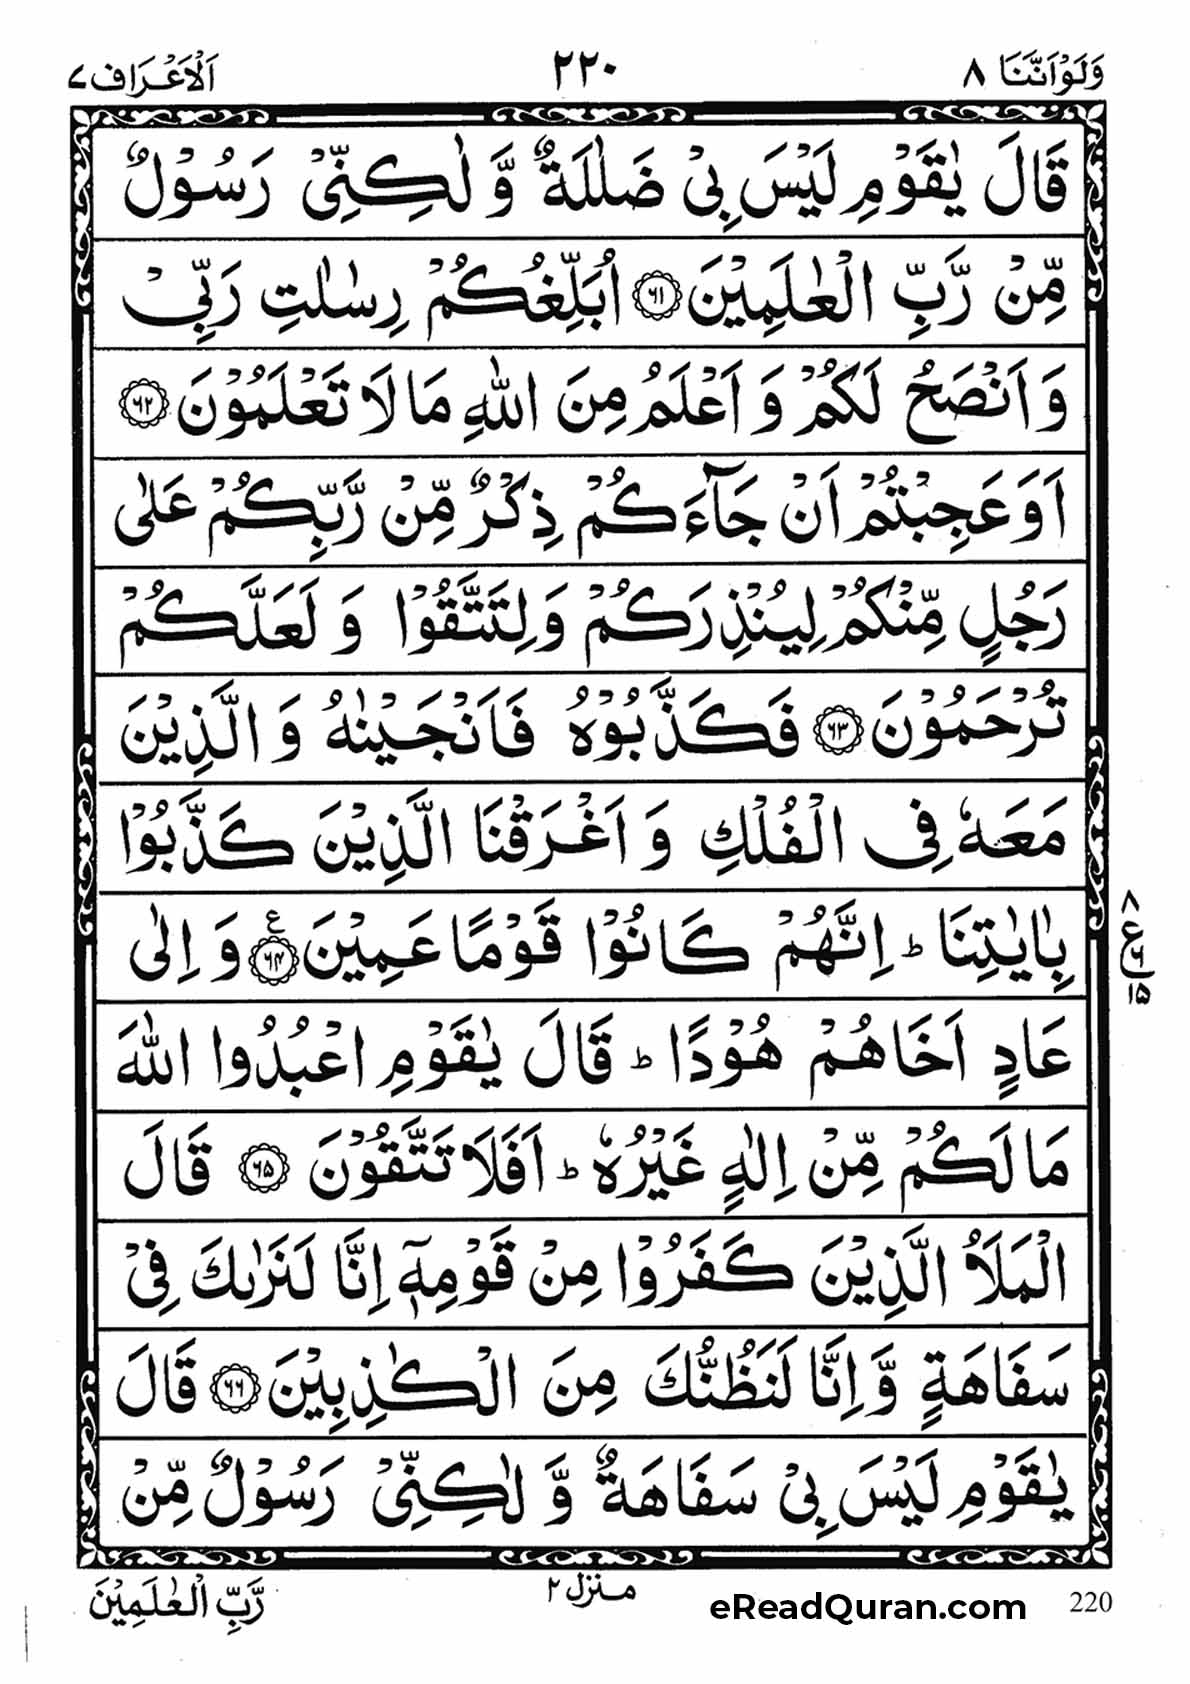 وَلَوْاَنَّنَا ٨
٢٢٠
اَلْاَعْرَاف ٧
قَالَ يٰقَوْمِ لَيْسَ بِيْ ضَلٰلَةٌ وَّ لٰكِنِّيْ رَسُوْلٌ
مِّنْ رَّبِّ الْعٰلَمِيْنَ ۝٦١ اُبَلِّغُكُمْ رِسٰلٰتِ رَبِّيْ
وَ اَنْصَحُ لَكُمْ وَ اَعْلَمُ مِنَ اللّٰهِ مَا لَا تَعْلَمُوْنَ ۝٦٢
اَوَ عَجِبْتُمْ اَنْ جَآءَكُمْ ذِكْرٌ مِّنْ رَّبِّكُمْ عَلٰى
رَجُلٍ مِّنْكُمْ لِيُنْذِرَكُمْ وَ لِتَتَّقُوْا وَ لَعَلَّكُمْ
تُرْحَمُوْنَ ۝٦٣ فَكَذَّبُوْهُ فَاَنْجَيْنٰهُ وَ الَّذِيْنَ
مَعَهٗ فِي الْفُلْكِ وَ اَغْرَقْنَا الَّذِيْنَ كَذَّبُوْا
بِاٰيٰتِنَا ؕ اِنَّهُمْ كَانُوْا قَوْمًا عَمِيْنَ ۝٦٤ ع وَ اِلٰى
عَادٍ اَخَاهُمْ هُوْدًا ؕ قَالَ يٰقَوْمِ اعْبُدُوا اللّٰهَ
مَا لَكُمْ مِّنْ اِلٰهٍ غَيْرُهٗ ؕ اَفَلَا تَتَّقُوْنَ ۝٦٥ قَالَ
الْمَلَاُ الَّذِيْنَ كَفَرُوْا مِنْ قَوْمِهٖۤ اِنَّا لَنَرٰىكَ فِيْ
سَفَاهَةٍ وَّ اِنَّا لَنَظُنُّكَ مِنَ الْكٰذِبِيْنَ ۝٦٦ قَالَ
يٰقَوْمِ لَيْسَ بِيْ سَفَاهَةٌ وَّ لٰكِنِّيْ رَسُوْلٌ مِّنْ
٨ ع ٦ ١٥
رَّبِّ الْعٰلَمِيْنَ
منزل ٢
eReadQuran.com
220